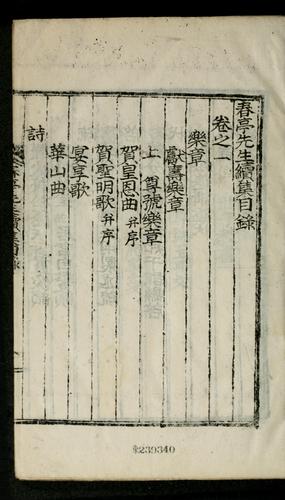 春亭先生續集目錄
卷之一
樂章
獻壽樂章
上 尊號樂章
賀皇恩曲并序
賀聖明歌并序
宴享歌
華山曲
詩
239340